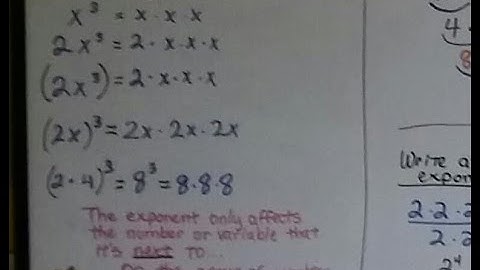 x³ = x · x · x
2x³ = 2 · x · x · x
(2x³) = 2 · x · x · x
(2x)³ = 2x · 2x · 2x
(2 · 4)³ = 8³ = 8 · 8 · 8
The exponent only affects
the number or variable that
it's next to...
4 ·
8
Write a
expon
2 · 2 · 2
2 · 2
2⁴